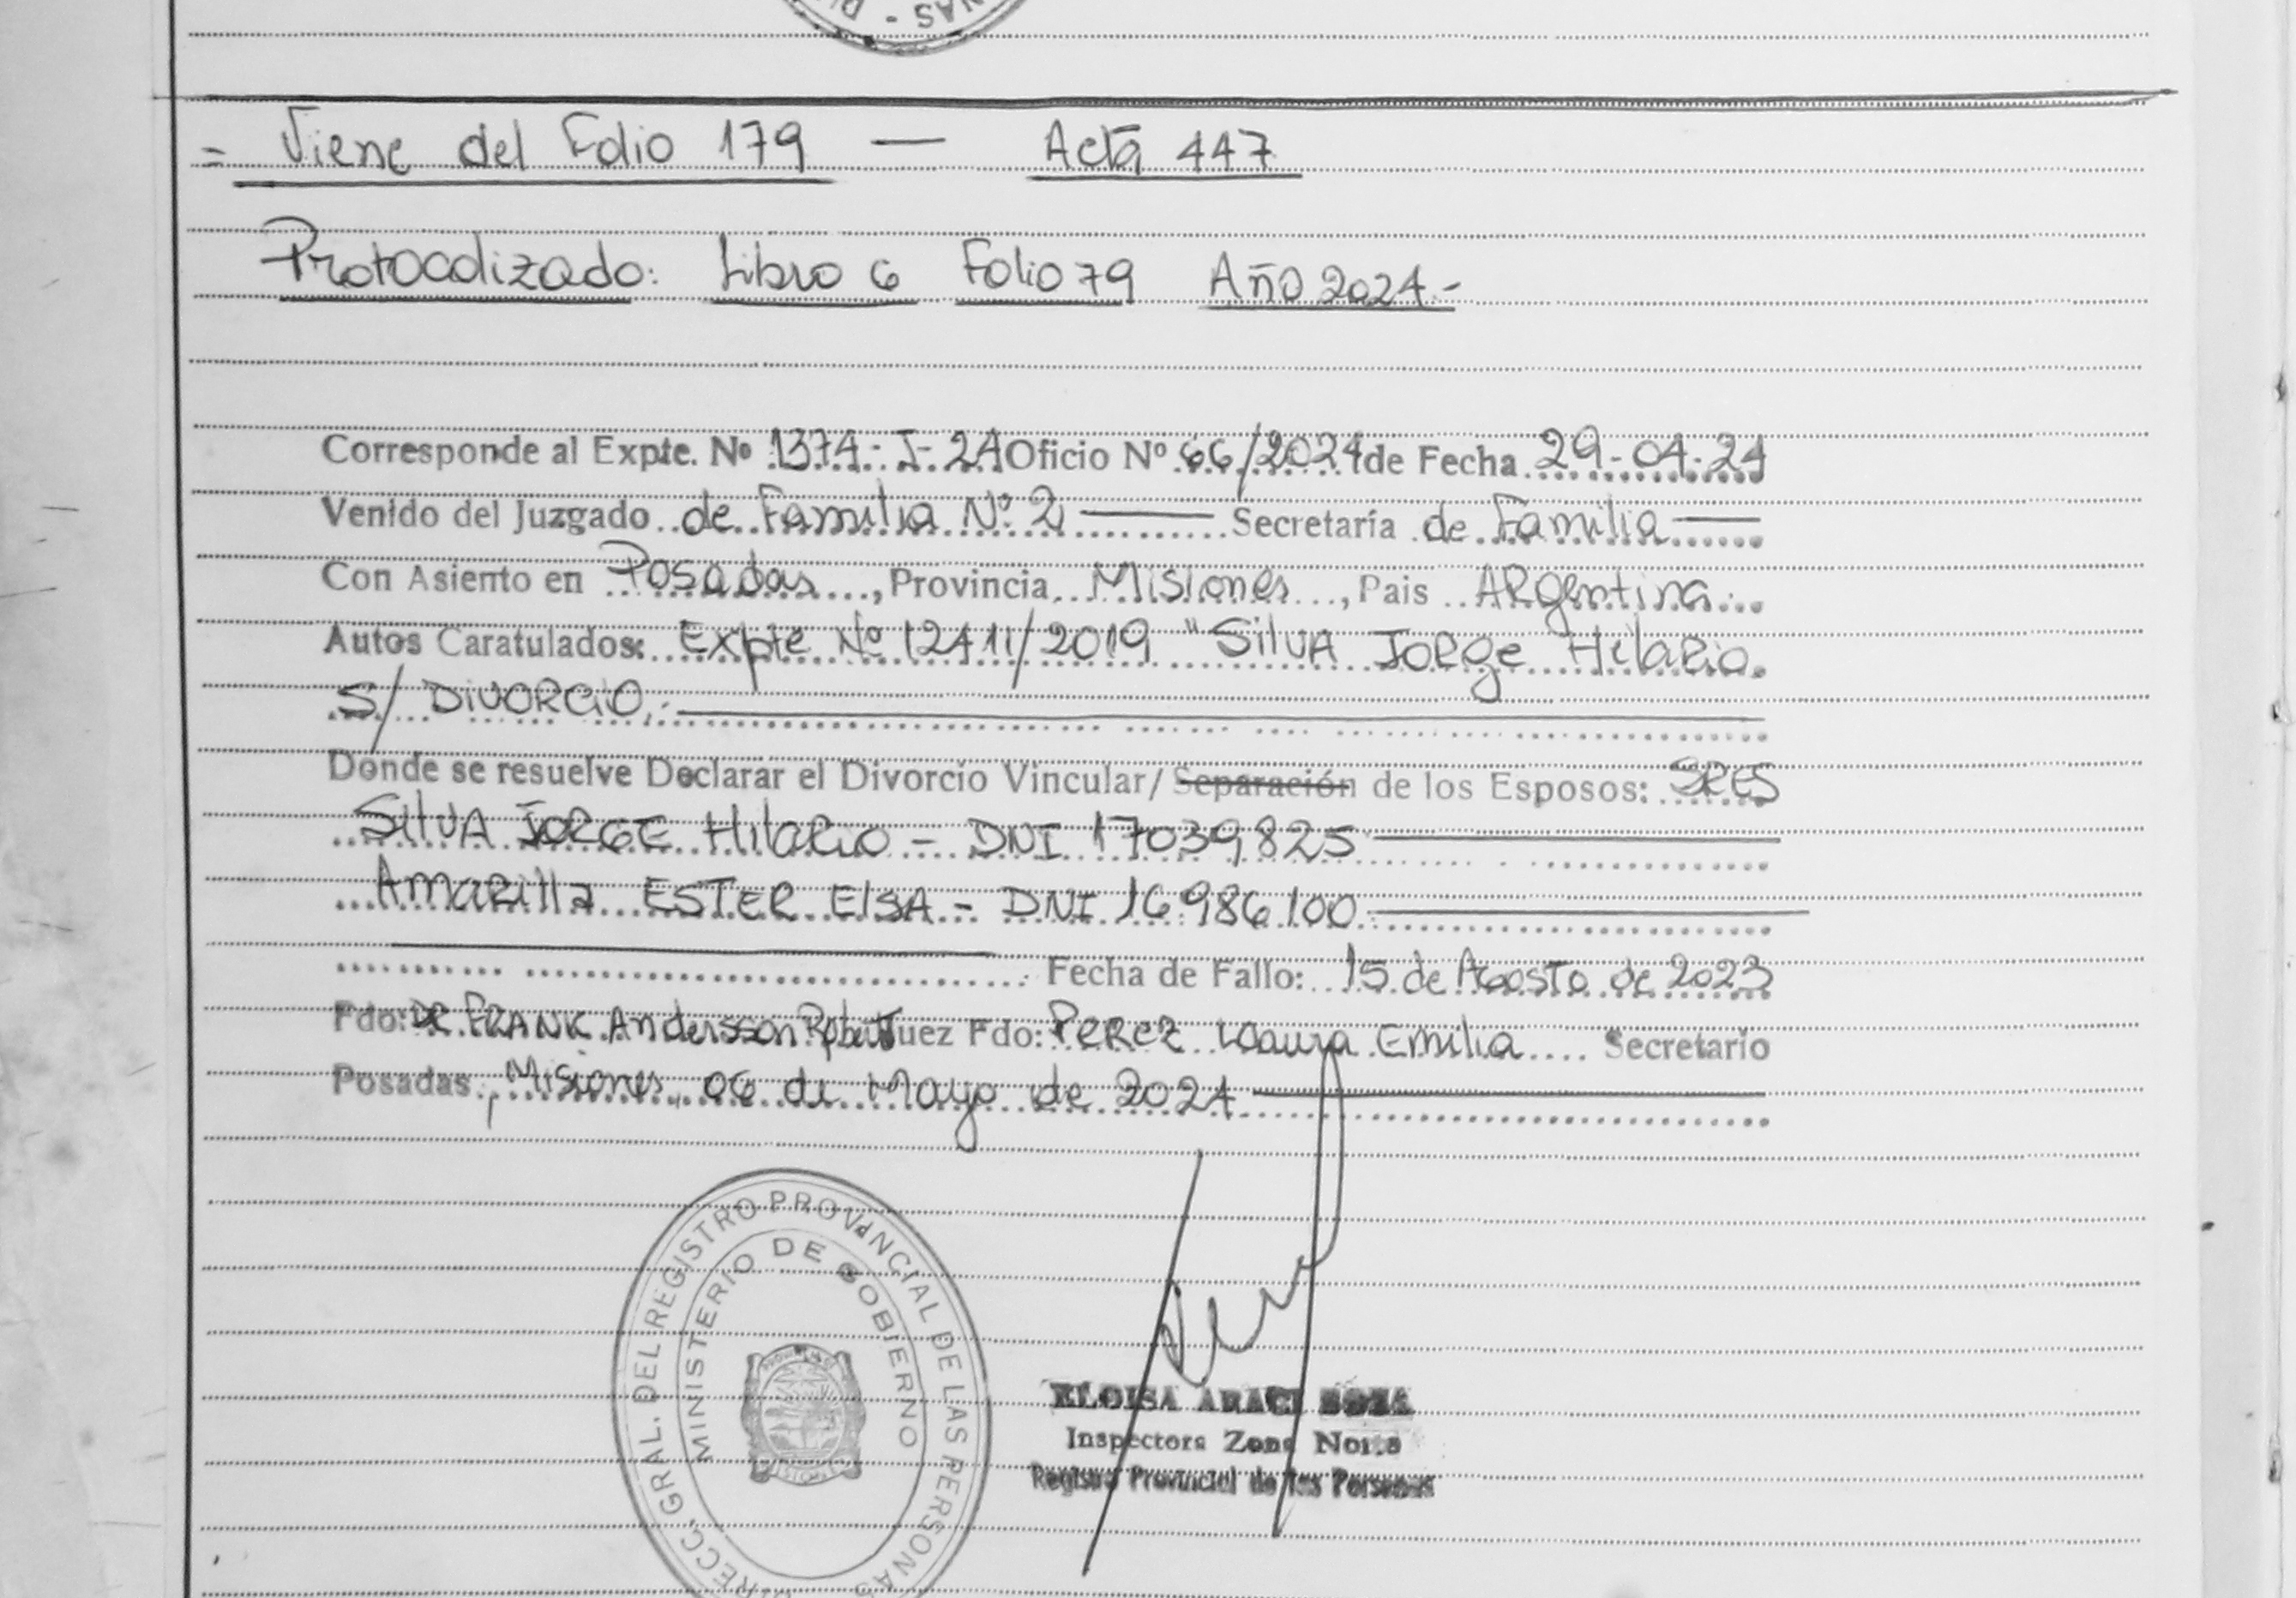 NAS - DI
= Viene del Folio 179 — Acta 447
Protocolizado: Libro 6 Folio 79 Año 2024.-
Corresponde al Expte. Nº 1374-J-24 Oficio Nº 66/2024 de Fecha 29-04-24
Venido del Juzgado de Familia Nº 2 — Secretaría de Familia —
Con Asiento en Posadas, Provincia Misiones, Pais ARgentina.
Autos Caratulados: Expte Nº 12411/2019 "SilVA JORge Hilario
S/ DiVORCiO.-
Donde se resuelve Declarar el Divorcio Vincular/ Separación de los Esposos: SRES
SilVA JORGE HilaRio - DNI 17039825
AmaRilla ESTER ElSA - DNI 16986100
Fecha de Fallo: 15 de Agosto de 2023
Fdo: DR FRANK Andersson Robert Juez Fdo: PeRez Laura Emilia Secretario
Posadas, Misiones, 06 de Mayo de 2024
DIRECC. GRAL. DEL REGISTRO PROVINCIAL DE LAS PERSONAS
MINISTERIO DE GOBIERNO
ELOISA ARACI
Inspectora Zona Norte
Registro Provincial de las Personas